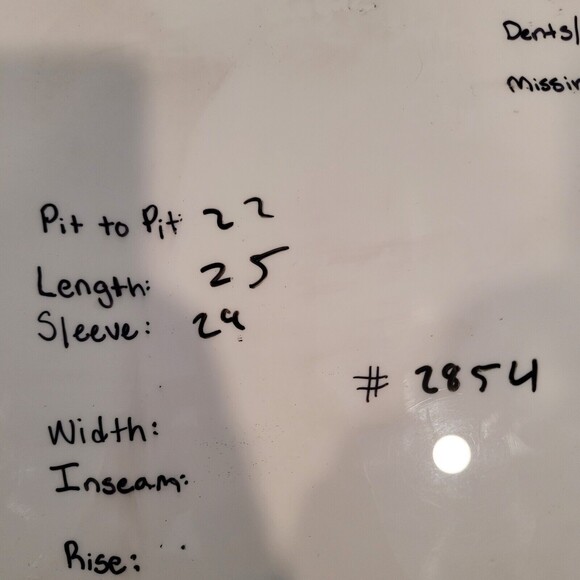 Dents/
Missin
Pit to Pit: 22
Length: 25
Sleeve: 24
# 2854
Width:
Inseam:
Rise: